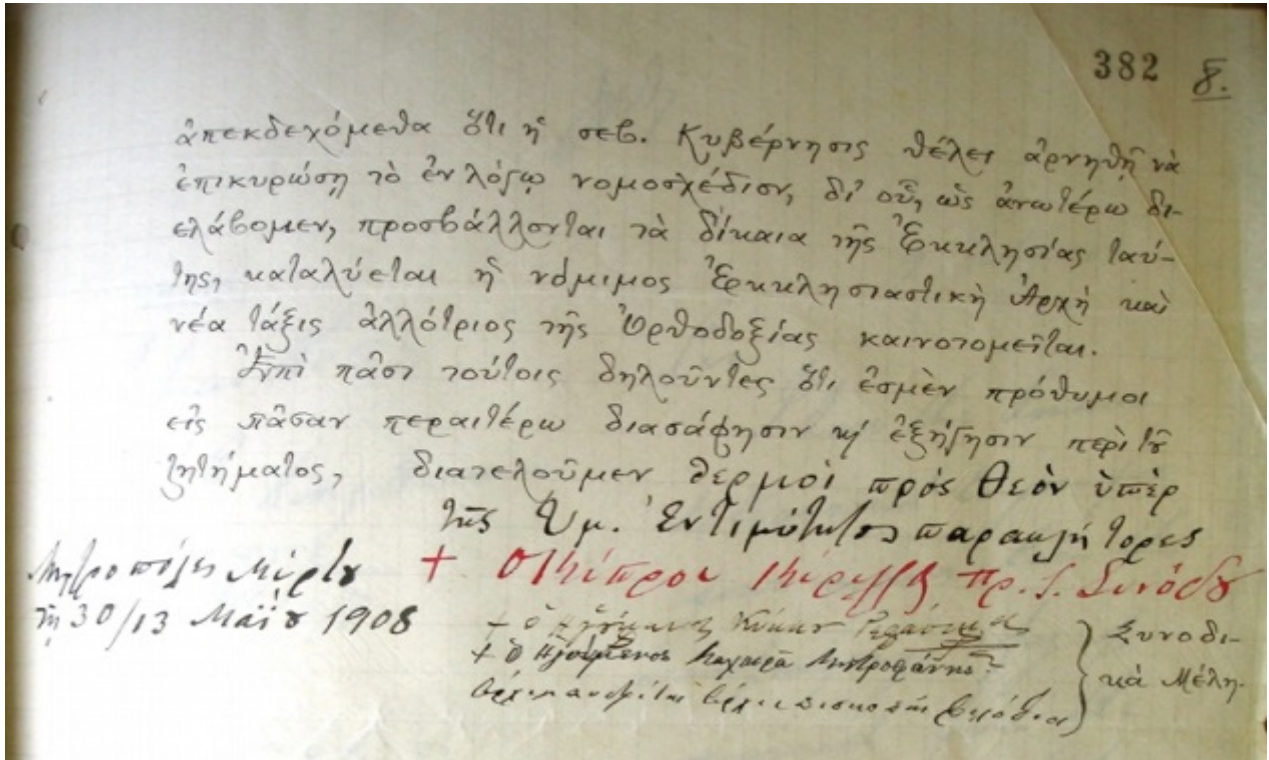 382 δ.
ἀπεκδεχόμεθα ὅτι ἡ σεβ. Κυβέρνησις θέλει ἀρνηθῆ νὰ
ἐπικυρώσῃ τὸ ἐν λόγῳ νομοσχέδιον, δι' οὗ, ὡς ἀνωτέρω δι-
ελάβομεν, προσβάλλονται τὰ δίκαια τῆς Ἐκκλησίας ταύ-
της, καταλύεται ἡ νόμιμος Ἐκκλησιαστικὴ Ἀρχὴ καὶ
νέα τάξις ἀλλότριος τῆς Ὀρθοδοξίας καινοτομεῖται.
Ἐπὶ πᾶσι τούτοις δηλοῦντες ὅτι ἐσμὲν πρόθυμοι
εἰς πᾶσαν περαιτέρω διασάφησιν κ' ἐξήγησιν περὶ τοῦ
ζητήματος, διατελοῦμεν θερμοὶ πρὸς Θεὸν ὑπὲρ
τῆς Ὑμ. Ἐντιμότητος παρακλήτορες
Μύρτου + Ὁ Κύπρου Πρ. Συνόδου
τῇ 30/13 Μαΐου 1908
+ ὁ Κύκκου
+ ὁ Ἡγούμενος Μαχαιρᾶ Μητροφάνης
Ἀρχιμανδρίτης Ἀρχιεπισκοπῆς
Συνοδι-
κὰ Μέλη.